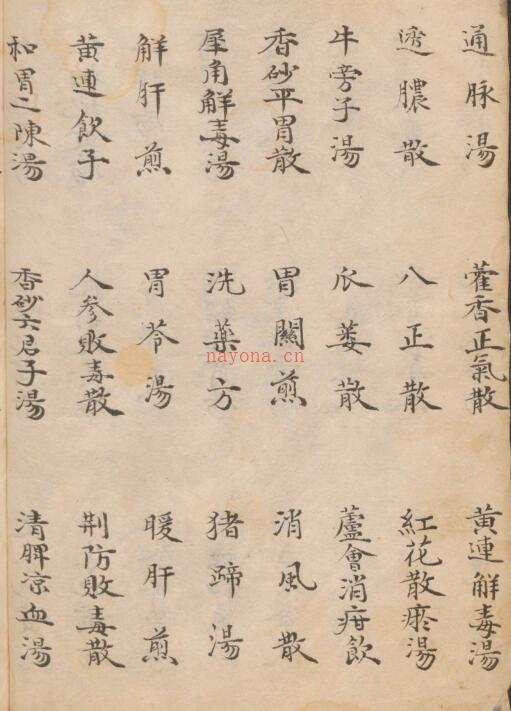 通脉湯 藿香正氣散 黃連解毒湯
透膿散 八正散 紅花散瘀湯
牛旁子湯 瓜蒌散 蘆會消疳飲
香砂平胃散 胃關煎 消風散
犀角解毒湯 洗藥方 猪蹄湯
解肝煎 胃苓湯 暖肝煎
黃連飲子 人參敗毒散 荆防敗毒散
和胃二陳湯 香砂六君子湯 清脾凉血湯
nayona.cn